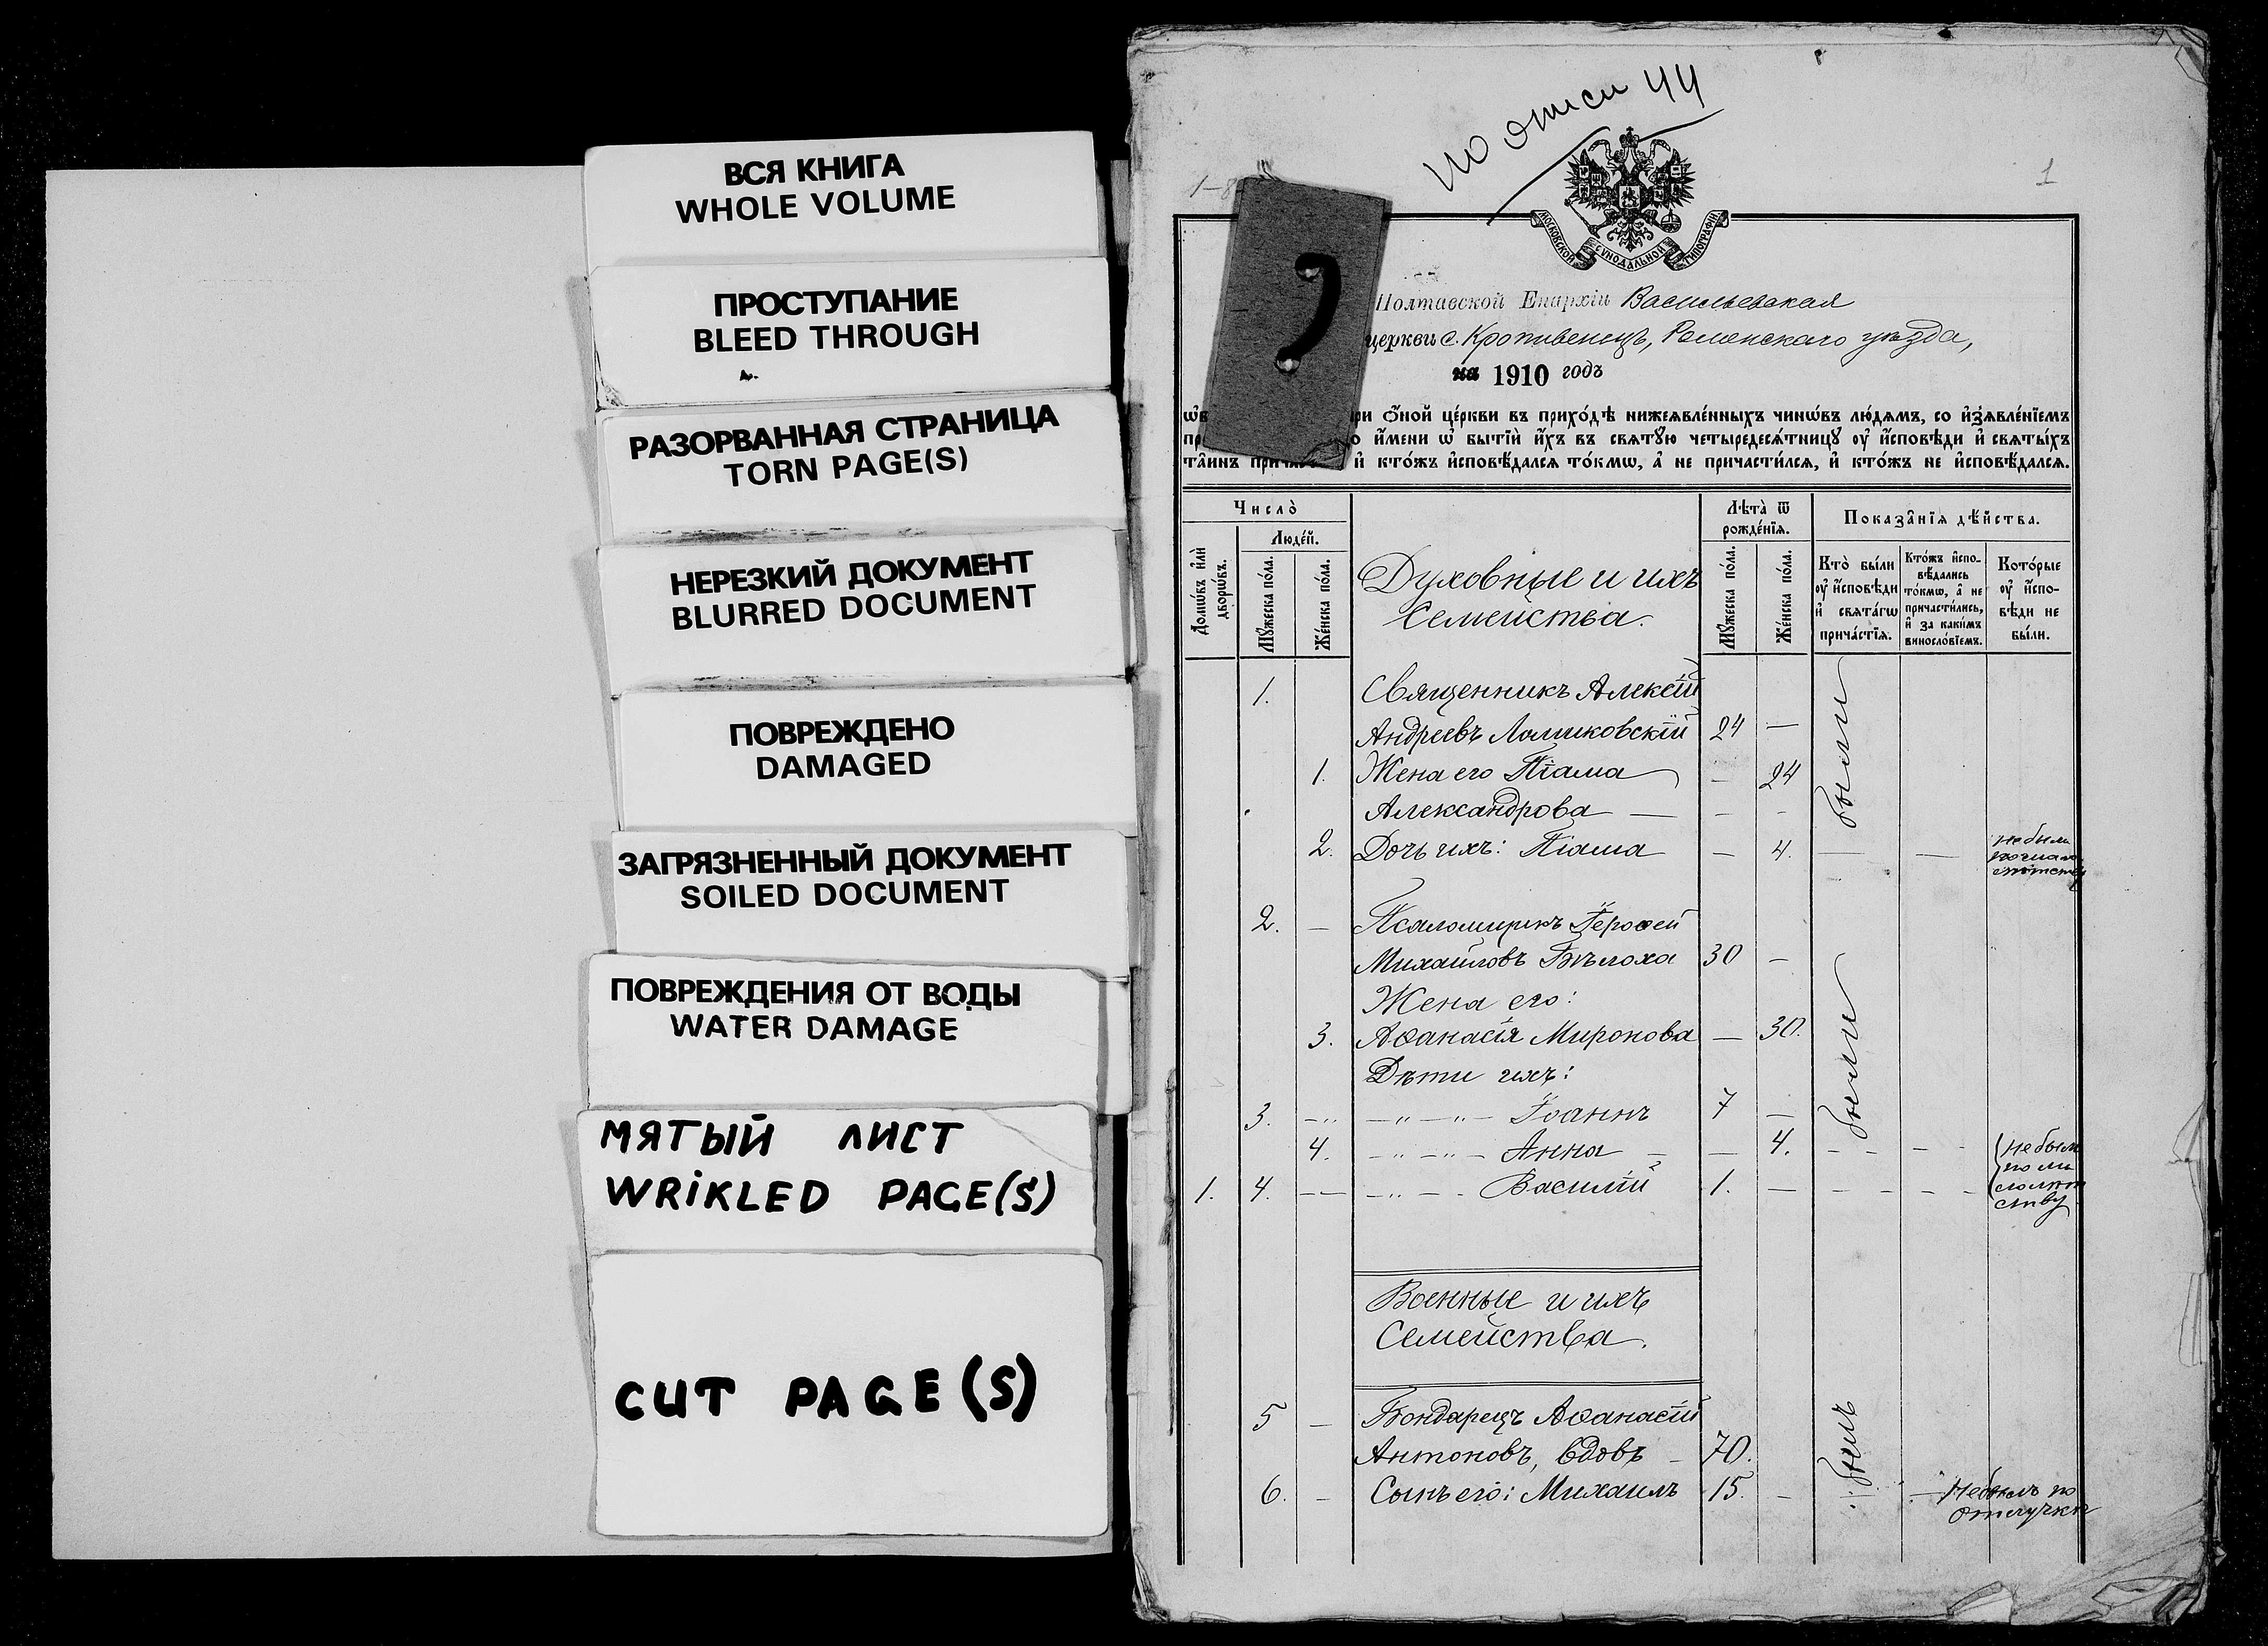 ВСЯ КНИГА
WHOLE VOLUME
ПРОСТУПАНИЕ
BLEED THROUGH
РАЗОРВАННАЯ СТРАНИЦА
TORN PAGE(S)
НЕРЕЗКИЙ ДОКУМЕНТ
BLURRED DOCUMENT
ПОВРЕЖДЕНО
DAMAGED
ЗАГРЯЗНЕННЫЙ ДОКУМЕНТ
SOILED DOCUMENT
ПОВРЕЖДЕНИЯ ОТ ВОДЫ
WATER DAMAGE
МЯТЫЙ ЛИСТ
WRIKLED PAGE(S)
CUT PAGE(S)
по описи 44
1-8
1
МОСКОВСКОЙ СѴНОДАЛЬНОЙ ТИПОГРАФІИ
Полтавской Епархіи Васильевская
церкви с. Кропивенецъ, Роменскаго уѣзда,
на 1910 годъ
ѻ҆́ной це́ркви въ прихо́дѣ нижеѧвле́нныхъ чинѡ́въ лю́дямъ, со и҆з̾ѧвле́нїемъ
и҆́мени ѡ҆ бытїѝ и҆́хъ въ свѧтꙋ́ю четыредесѧ́тницꙋ ᲂу҆ и҆́сповѣди и҆ свѧты́хъ
та̑инъ и҆ кто́жъ и҆сповѣ́дался то́кмѡ, а҆ не причасти́лся, и҆ кто́жъ не и҆сповѣ́дался.
Число̀
Люде́й.
Домѡ́въ и҆лѝ дворѡ́въ.
Мꙋ́жеска по́ла.
Же́нска по́ла.
Духовные и ихъ
Семейства.
Лѣта̀ ѿ рожде́нїѧ.
Мꙋ́жеска по́ла.
Же́нска по́ла.
Показа̑нїѧ дѣ́йства.
Кто̀ бы́ли ᲂу҆ и҆́сповѣди и҆ свѧта́гѡ прича́стїѧ.
Кто́жъ и҆спо-вѣ́дались то́кмѡ, а҆ не причасти́лись, и҆ за каки́мъ винословїемъ.
Кото́рые ᲂу҆ и҆́спо-вѣди не бы́ли.
1. Священникъ Алексій
Андреевъ Ломиковскій 24 — были
1. Жена его Піама — 24
Александрова — — -
2. Дочь ихъ: Піама — 4. — — не были
2. — Псаломщикъ Іероѳей
Михайловъ Бѣлоха 30 — были
Жена его:
3. Аѳанасія Миронова — 30.
Дѣти ихъ:
3. Іоаннъ 7 —
4. Анна — 4. не были
1. 4. Василій 1. —
Военные и ихъ
Семейства.
5 — Бондарецъ Аѳанасій
Антоновъ, вдовъ 70. былъ
6. — Сынъ его: Михаилъ 15. — Не былъ по
отлучкѣ